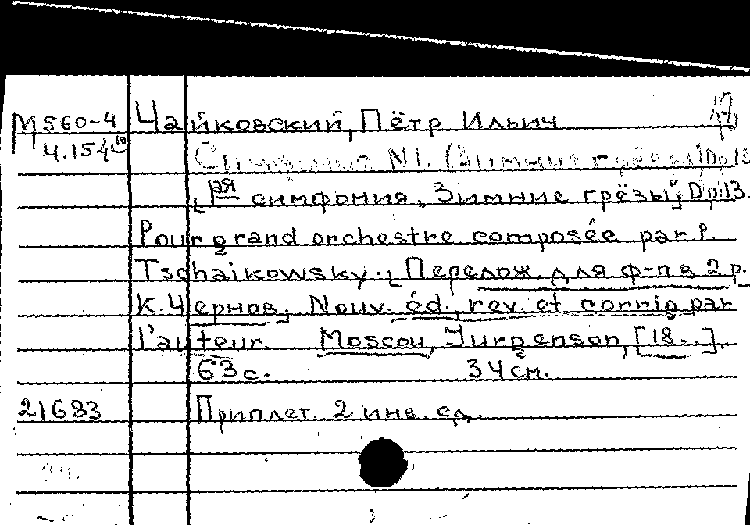 М560-4 Чайковский, Пётр Ильич
Ч.154
Симфония N1. (Зимние грёзы) Op.13
[1ая симфония „Зимние грёзы“, Op.13.
Pour grand orchestre composée par P.
Tschaikowsky. [Перелож. для ф-п в 2 р.
К. Чернов]. Nouv. éd., rev. et corrig. par
l'auteur. Moscou, Jurgenson, [18..].
63 с. 34 см.
21683 Приплет. 2 инв. ед.